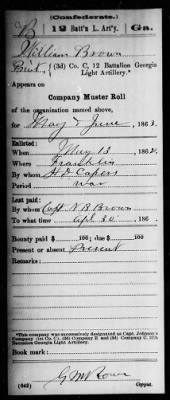 (Confederate.)
B 12 Batt'n L. Art'y. Ga.
William Brown
Pvt., (3d) Co. C, 12 Battalion Georgia
Light Artillery.*
Appears on
Company Muster Roll
of the organization named above,
for May & June, 1863.
Enlisted:
When May 13, 1862.
Where Franklin
By whom H. D. Capers
Period war
Last paid:
By whom Capt. N. B. Brown
To what time Apl 30, 186
Bounty paid $ 100; due $ 100
Present or absent Present
Remarks:
*This company was successively designated as Capt. Johnson's
Company (1st Co. C), (3d) Company E and (3d) Company C, 12th
Battalion Georgia Light Artillery.
Book mark:
(642)
Copyist.